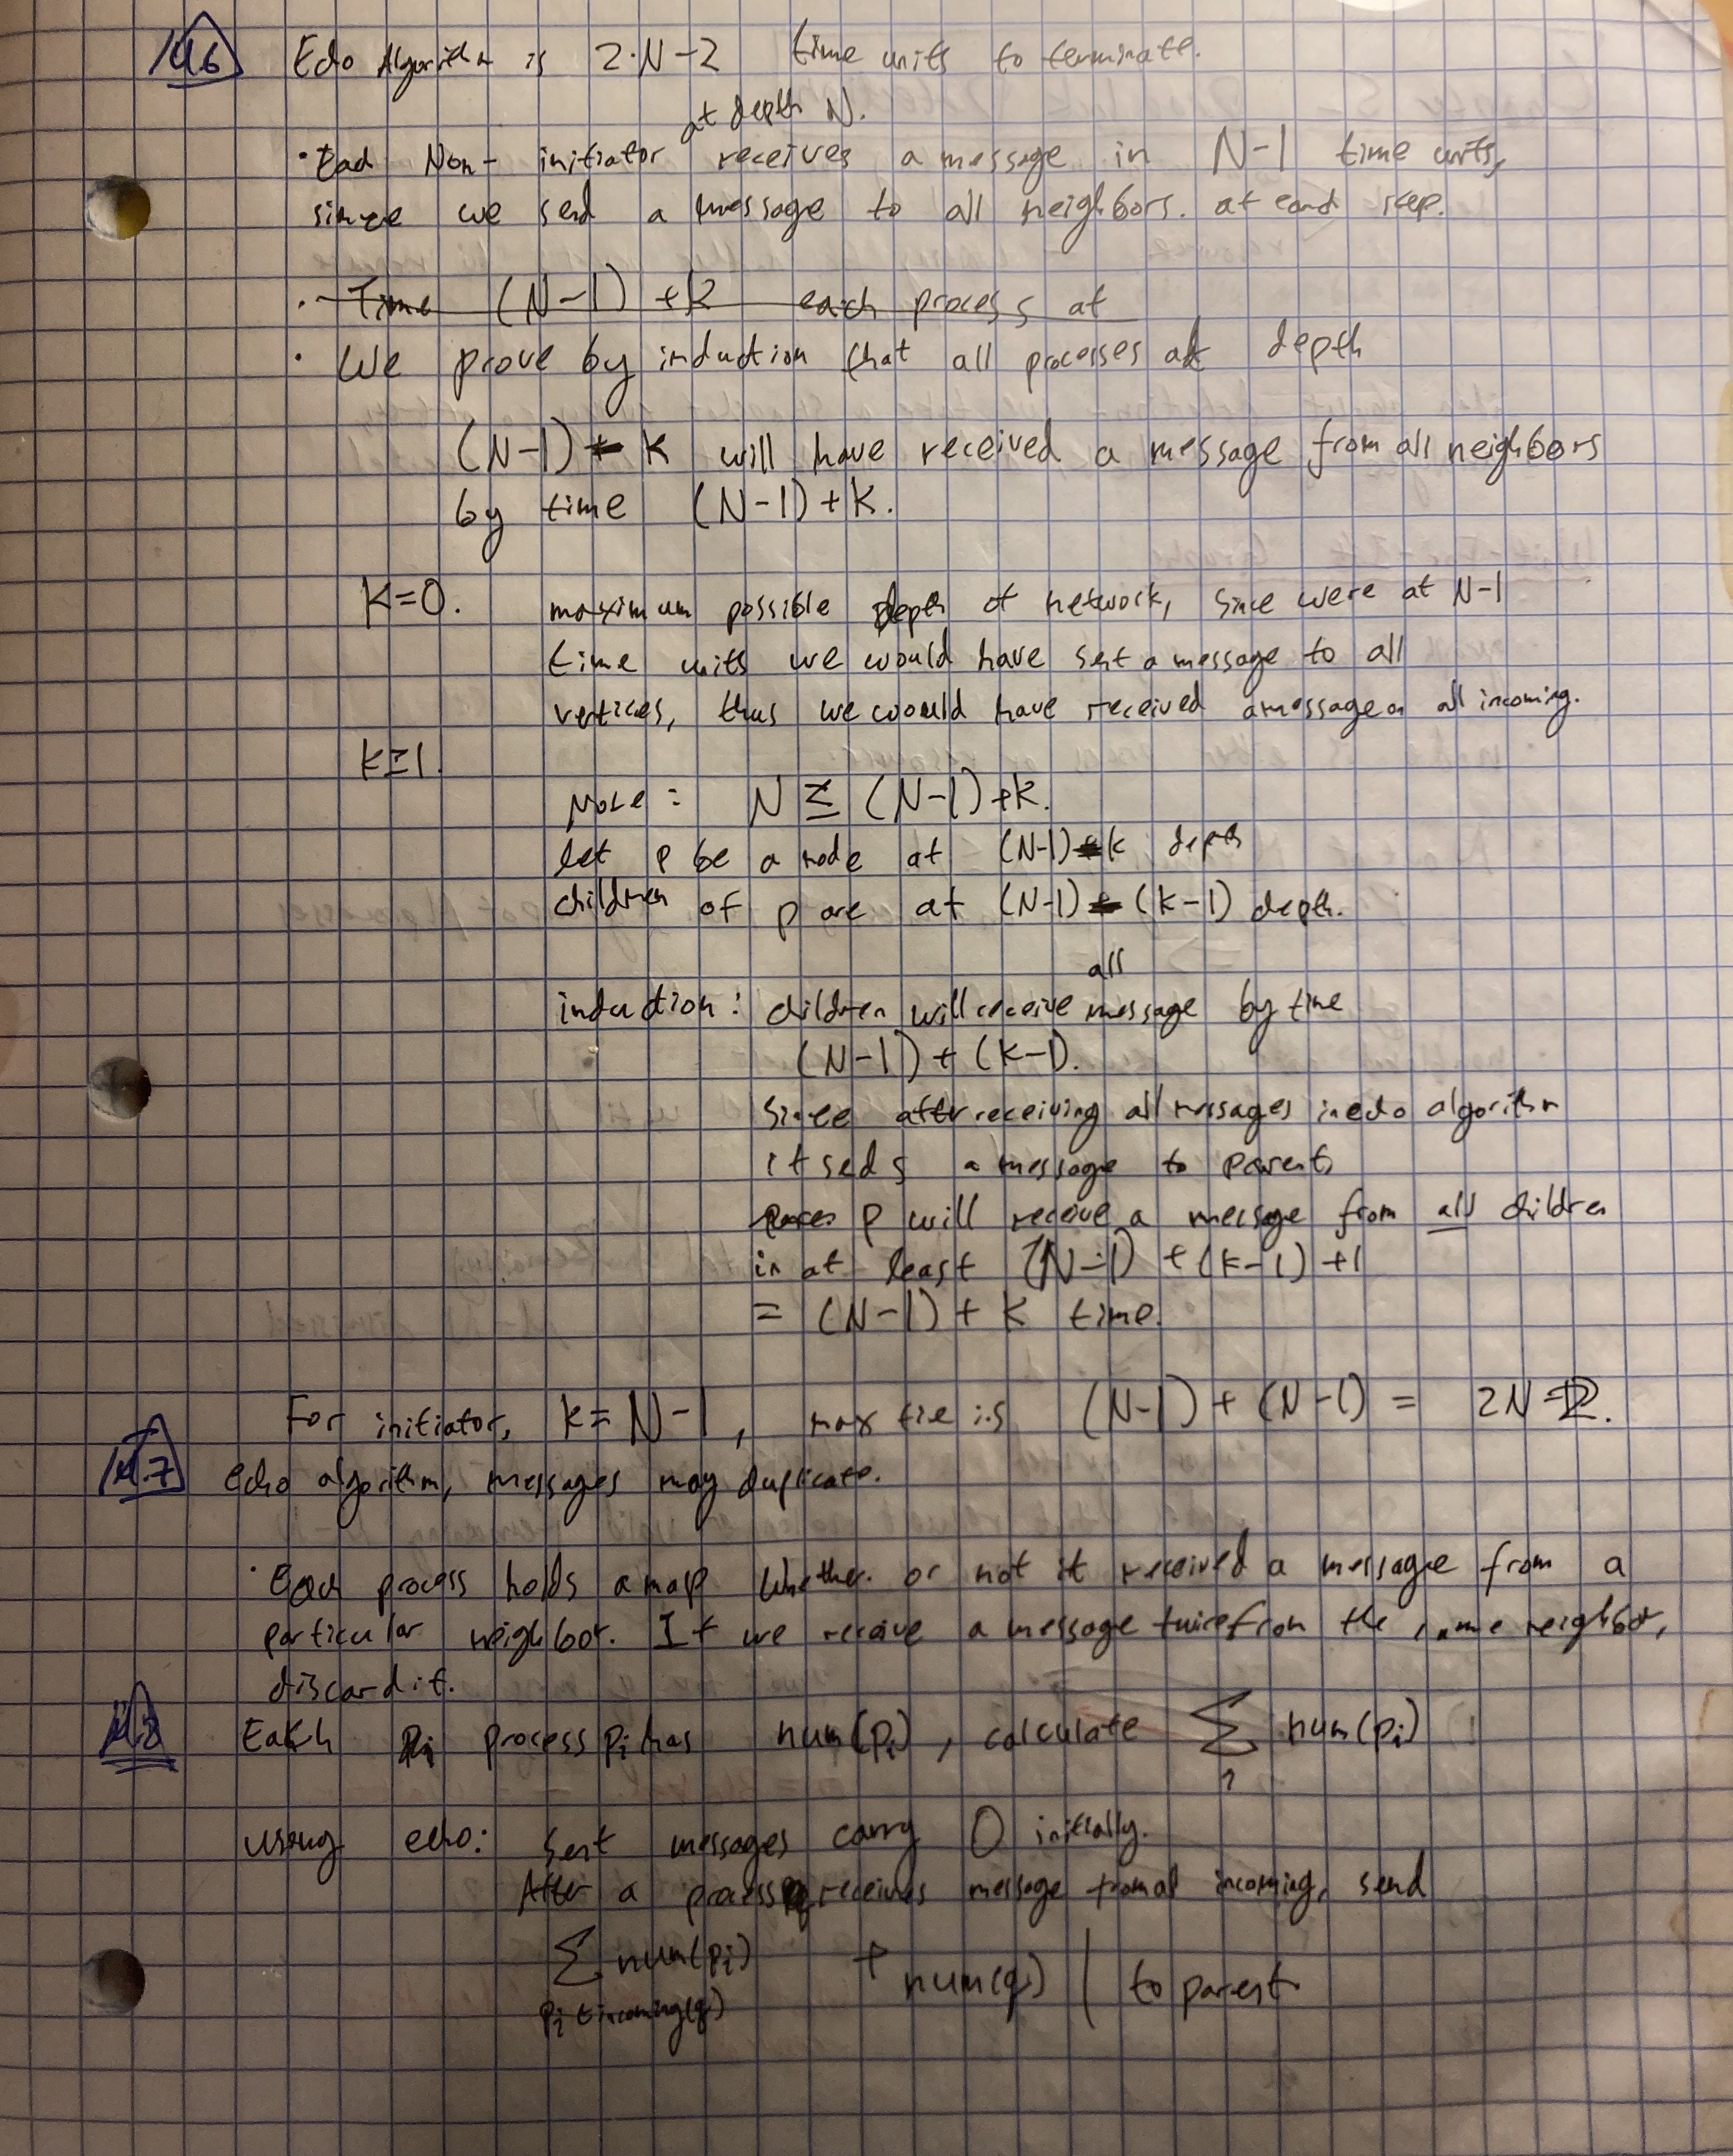 Echo Algorithm is 2·N-2 time units to terminate.
at depth N.
· Each Non-initiator receives a message in N-1 time units,
since we send a message to all neighbors. at each step.
· Time (N-1) + k each process at
· We prove by induction that all processes at depth
(N-1) - k will have received a message from all neighbors
by time (N-1) + k.
k=0. maximum possible depth of network, since were at N-1
time units we would have sent a message to all
vertices, thus we would have received a message on all incoming.
k≥1.
Note: N ≤ (N-1) + k.
let p be a node at (N-1) - k depth
children of p are at (N-1) - (k-1) depth.
all
induction: children will receive message by time
(N-1) + (k-1).
Since after receiving all messages in echo algorithm
it sends a message to parent,
p will receive a message from all children
in at least (N-1) + (k-1) + 1
= (N-1) + k time.
For initiator, k = N-1, max time is (N-1) + (N-1) = 2N-2.
14.7
echo algorithm, messages may duplicate.
· Each process holds a map whether or not it received a message from a
particular neighbor. If we receive a message twice from the same neighbor,
discard it.
Each process pi has num(pi), calculate Σ num(pi)
i
using echo: Sent messages carry 0 initially.
After a process q receives message from all incoming, send
Σ num(pi) + num(q) | to parent
pi ∈ incoming(q)